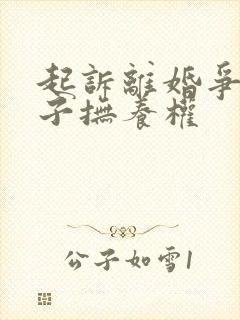 起訴離婚爭
子撫養權
公子如雪1